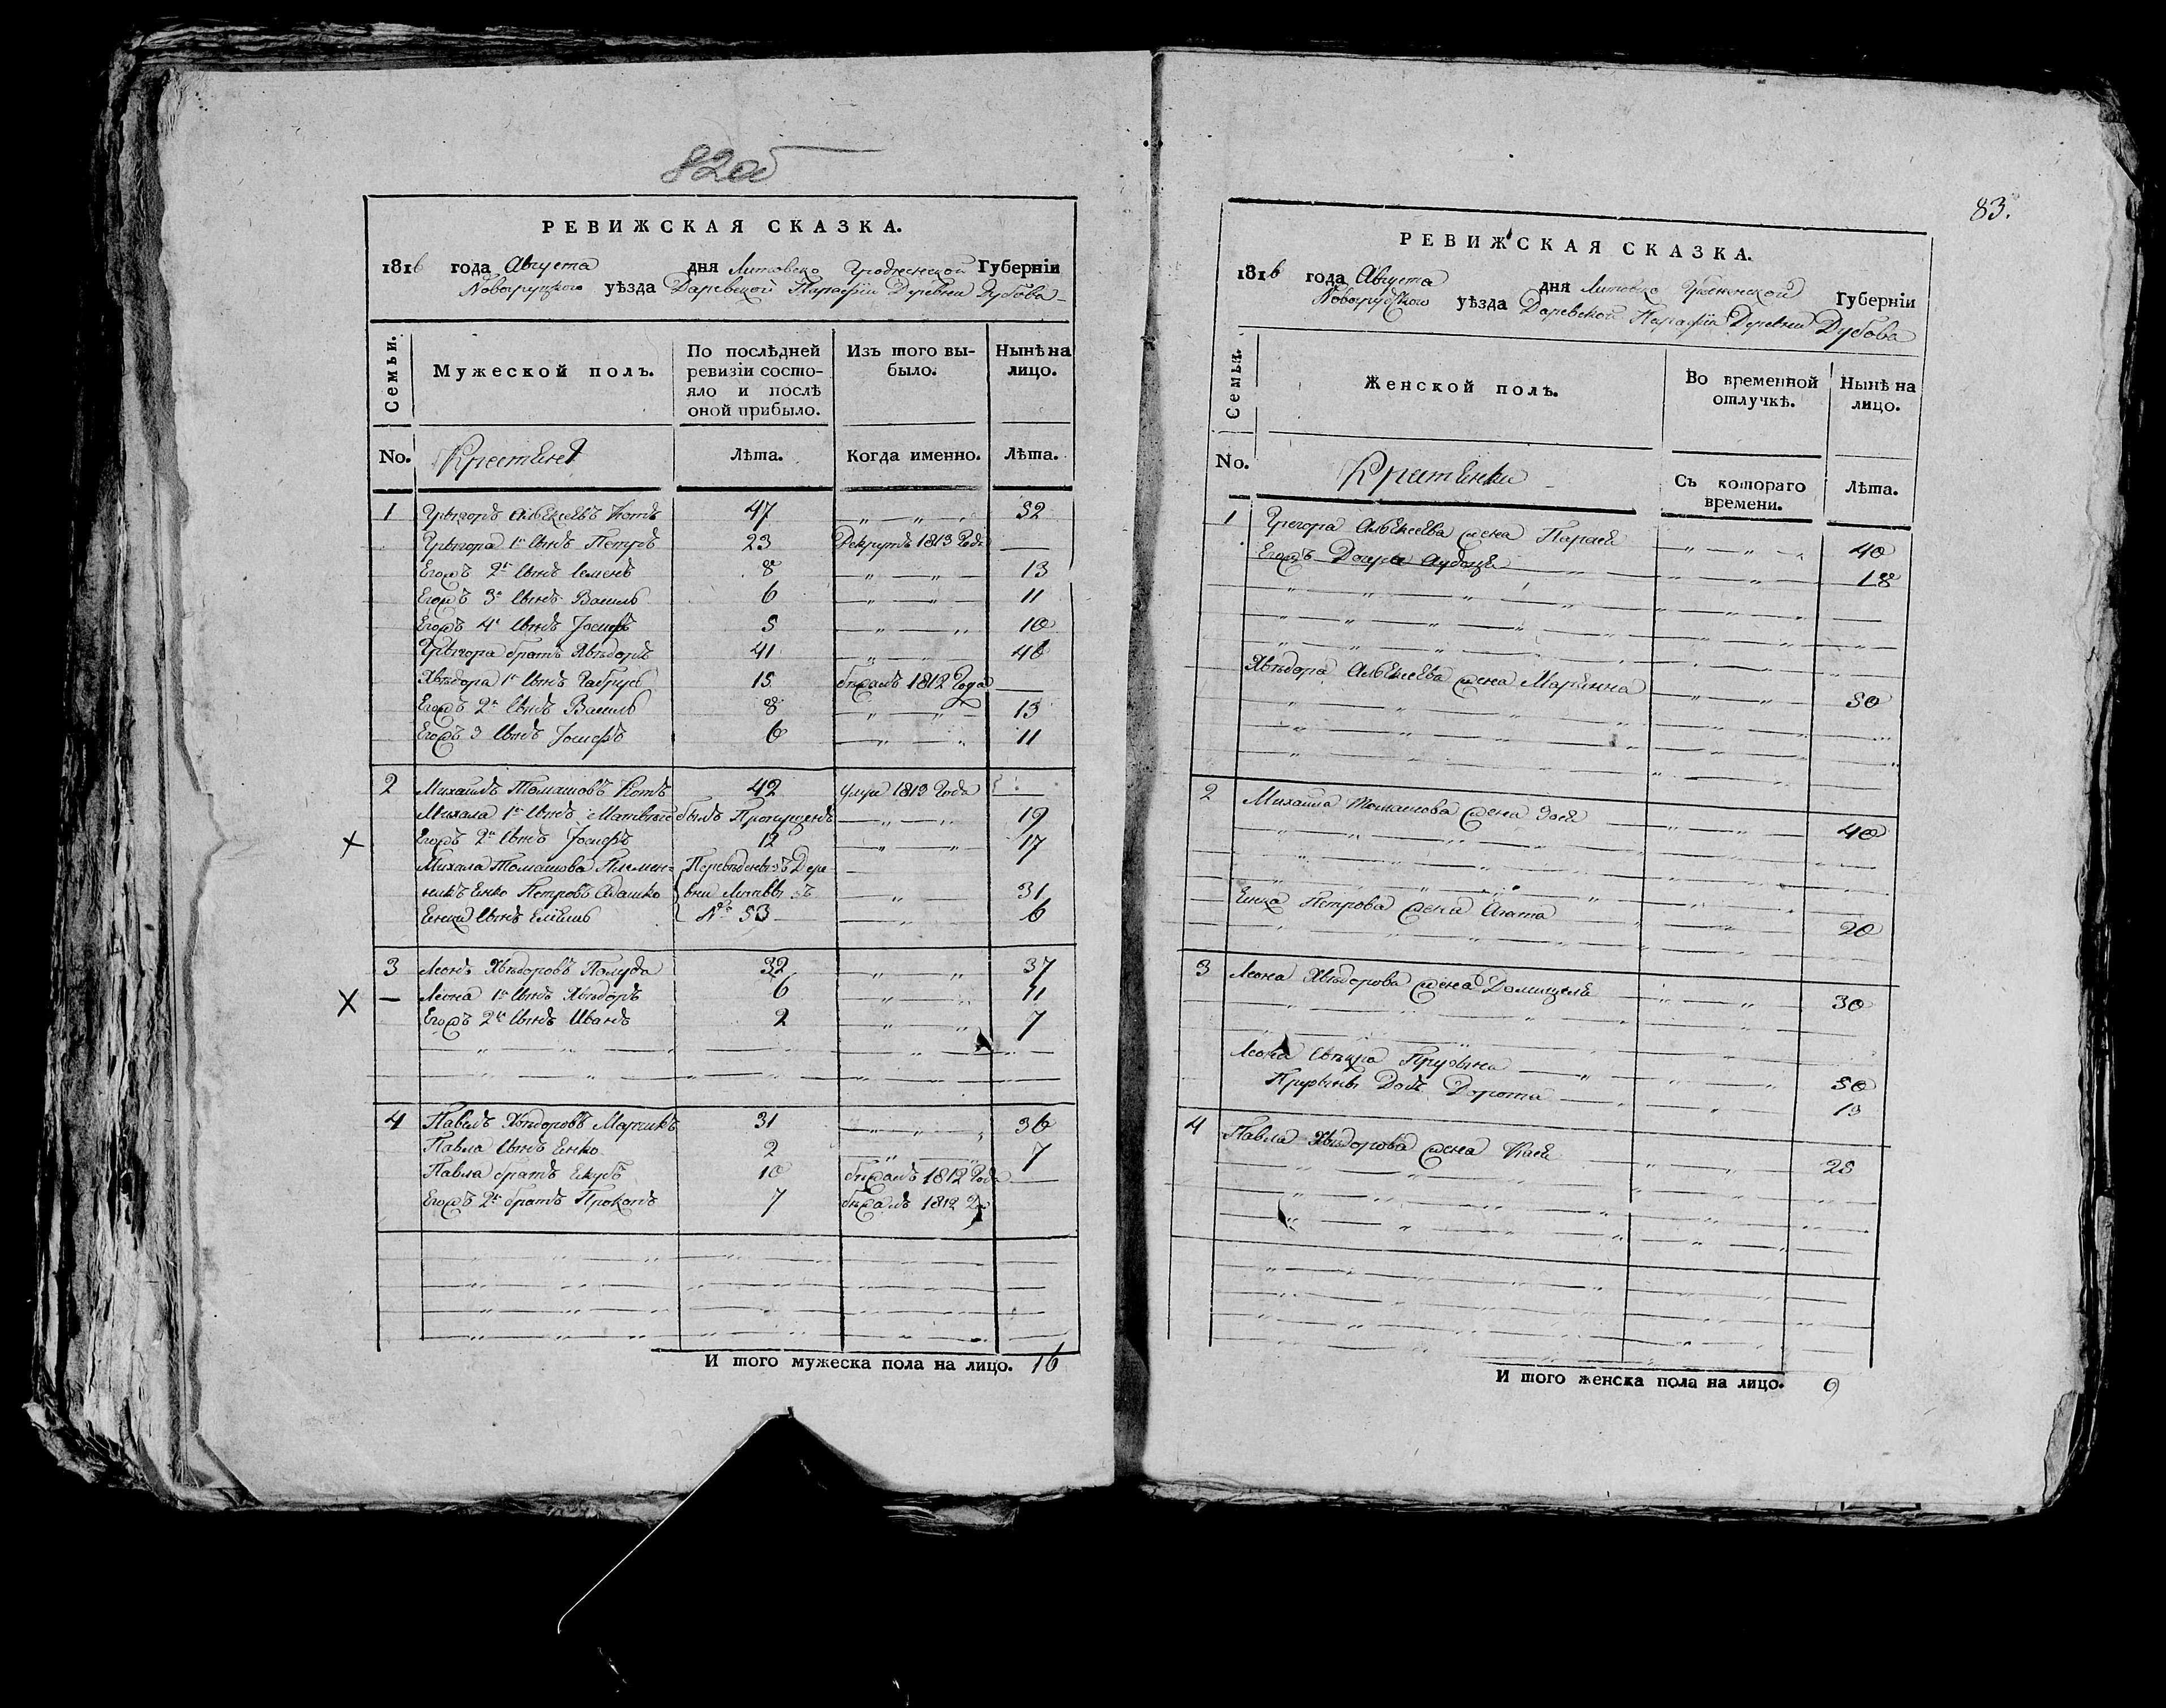 82об
РЕВИЖСКАЯ СКАЗКА.
1816 года Августа дня Литовско Гродненской Губерніи
Новогрудского уѣзда Даревской Парафіи Деревни Дубова
Семьи. Мужеской полъ. По послѣдней ревизіи состояло и послѣ оной прибыло. Изъ того выбыло. Нынѣ на лицо.
No. Лѣта. Когда именно. Лѣта.
1 Григоръ Алексеевъ Котъ 47 52
Григора 1й Сынъ Петръ 23 Рекрутъ 1813 Года
Егожъ 2й Сынъ Семенъ 8 13
Егожъ 3й Сынъ Василь 6 11
Егожъ 4й Сынъ Јосифъ 5 10
Григора братъ Хвѣдоръ 41 46
Хвѣдора 1й Сынъ Габрусь 15 бѣжалъ 1812 Года
Егожъ 2й Сынъ Василь 8 13
Егожъ 3 Сынъ Јосифъ 6 11
2 Михаилъ Томашовъ Котъ 42 умре 1813 Года
Михала 1й Сынъ Матвѣй былъ Пропущенъ 19
Егожъ 2й Сынъ Јосифъ 12 17
Михала Томашова Племен- Переведены зъ Дере
никъ Енко Петровъ Адашко вни Литвы зъ 31
Енка Сынъ № 53 6
3 Леонъ Хвѣдоровъ Полуда 32 37
Леона 1й Сынъ Хвѣдоръ 6 11
Егожъ 2й Сынъ Иванъ 2 7
4 Павелъ Хвѣдоровъ 31 36
Павла Сынъ Енко 2 7
Павла братъ Якубъ 10 бѣжалъ 1812 Года
Егожъ 2й братъ Прокопъ 7 бѣжалъ 1812
И того мужеска пола на лицо. 16
83.
РЕВИЖСКАЯ СКАЗКА.
1816 года Августа дня Литовско Гродненской Губерніи
Новогрудского уѣзда Даревской Парафіи Деревни Дубова
Семьи. Женской полъ. Во временной отлучкѣ. Нынѣ на лицо.
No. Съ котораго времени. Лѣта.
1 Григора Алексеева жена Парася 40
Егожъ Дочра 18
Хвѣдора Алексеева жена Марянна 50
2 Михаила Томашова жена Зося 40
Енка Петрова жена Агата 20
3 Леона Хвѣдорова жена Домицеля 30
Леона 50
Дочь Дорота 13
4 Павла Хвѣдорова жена Кася 25
И того женска пола на лицо. 9